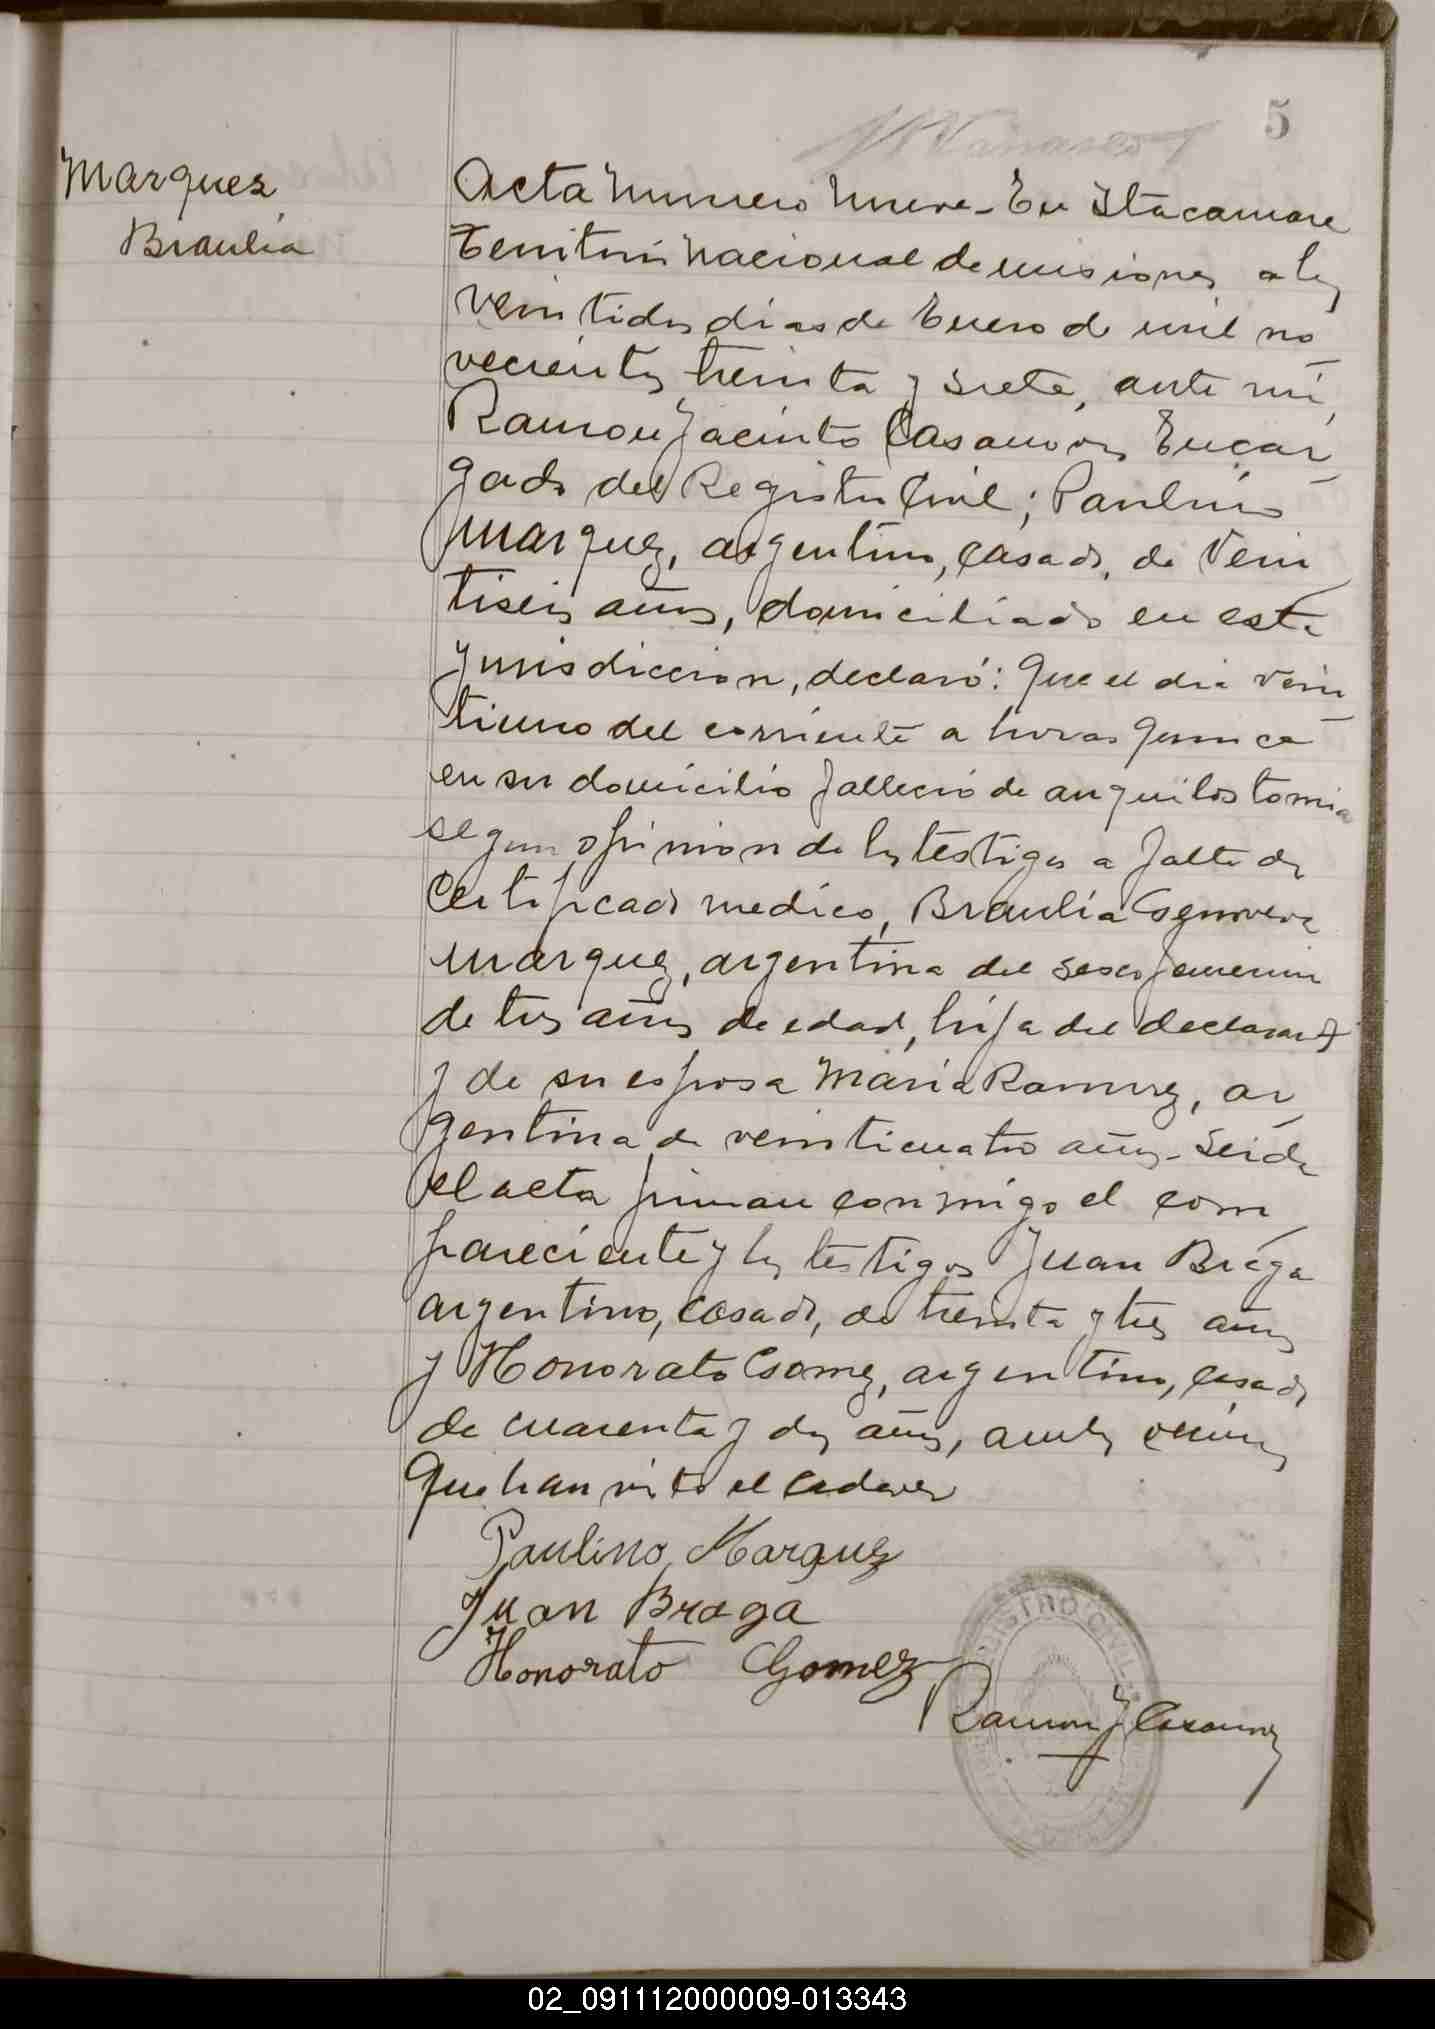 5
Marquez
Braulia
Acta Numero Nueve - En Itacaruare
Territorio Nacional de misiones a los
veintidos dias de Enero de mil no
vecientos treinta y siete, ante mi,
Ramon Jacinto Casanova Encar
gado del Registro Civil; Paulino
Marquez, argentino, casado, de Vein
tiseis años, domiciliado en esta
Jurisdiccion, declaró: Que el dia vein
tiuno del corriente a horas quince
en su domicilio falleció de anquilostomia
segun opinion de los testigos a falta de
Certificado medico, Braulia Genoveva
Marquez, argentina del sexo femenino
de tres años de edad, hija del declarante
y de su esposa Maria Ramirez, ar
gentina de veinticuatro años. Leida
el acta firman conmigo el com
pareciente y los testigos Juan Braga
argentino, casado, de treinta y tres años
y Honorato Gomez, argentino, casado
de cuarenta y dos años, ambos vecinos
Que han visto el cadaver
Paulino Marquez
Juan Braga
Honorato Gomez
Ramon J Casanova
REGISTRO CIVIL
02_091112000009-013343